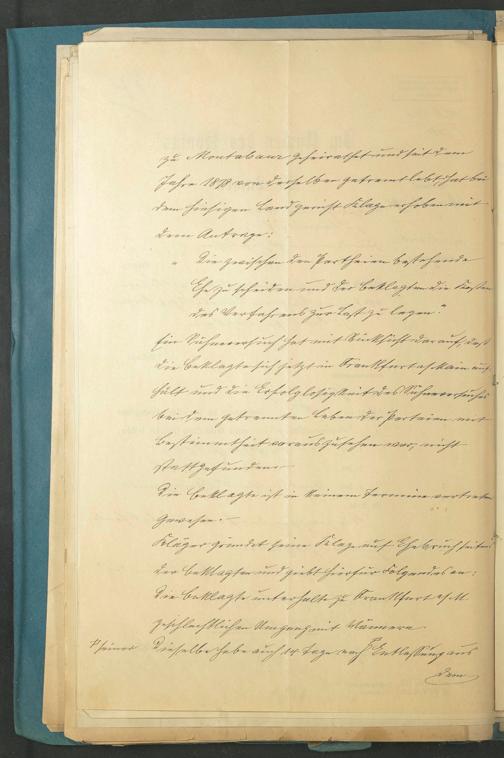 zu Montabaur geheirathet und seit dem
Jahre 1878 von derselben getrennt lebt, hat bei
dem hiesigen Landgericht Klage erhoben mit
dem Antrage:
" die zwischen den Partheien bestehende
Ehe zu scheiden und der Beklagten die Kosten
des Verfahrens zur Last zu legen."
Ein Sühneversuch hat mit Rücksicht darauf, daß
die Beklagte sich jetzt in Frankfurt a/Main auf-
hält und die Erfolglosigkeit des Sühneversuchs
bei dem getrennten Leben der Parteien mit
Bestimmtheit vorauszusehen war, nicht
stattgefunden.
Die Beklagte ist in keinem Termine vertreten
gewesen. —
Kläger gründet seine Klage auf Ehebruch seitens
der Beklagten und giebt hierfür Folgendes an:
Die Beklagte unterhalte zu Frankfurt a/M.
geschlechtlichen Umgang mit Männern
Dieselbe habe auch 14 Tage nach Entlassung aus
seiner
dem